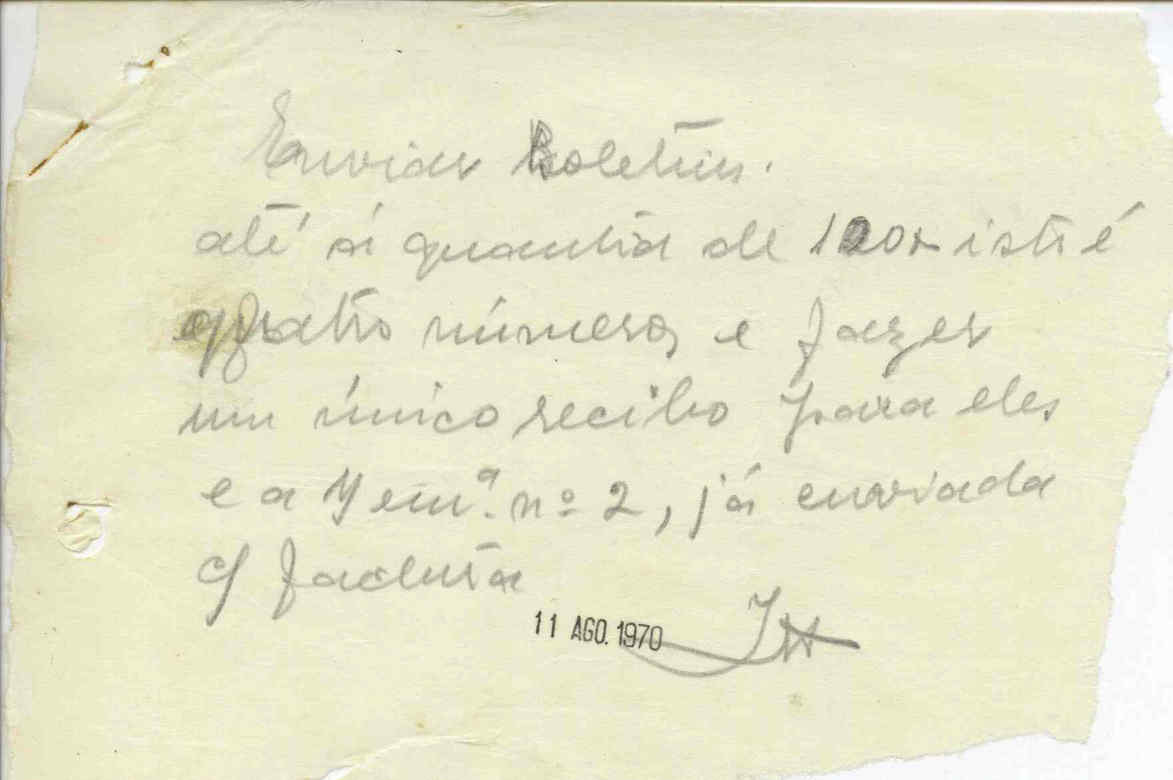 Enviar Boletins.
até à quantia de 120$ isto é
quatro números e fazer
um único recibo para eles
e a nº 2, já enviada
c/ factura
11 AGO. 1970